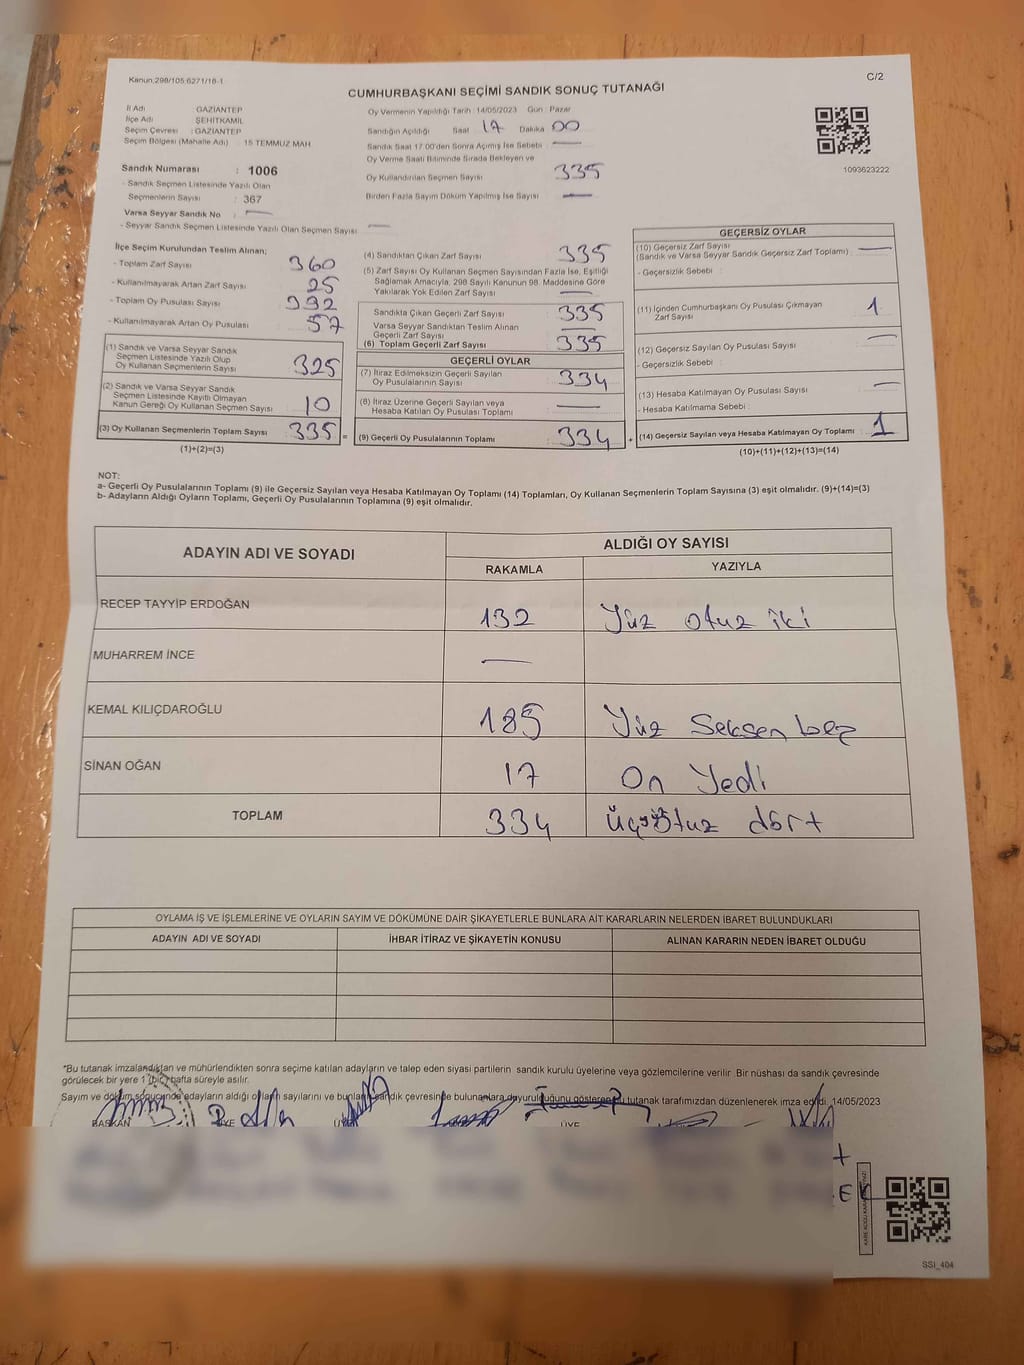 Kanun:298/105 6271/18-1
C/2
CUMHURBAŞKANI SEÇİMİ SANDIK SONUÇ TUTANAĞI
İl Adı : GAZİANTEP
İlçe Adı : ŞEHİTKAMİL
Seçim Çevresi : GAZİANTEP
Seçim Bölgesi (Mahalle Adı) : 15 TEMMUZ MAH.
Sandık Numarası : 1006
- Sandık Seçmen Listesinde Yazılı Olan
Seçmenlerin Sayısı : 367
Varsa Seyyar Sandık No : —
- Seyyar Sandık Seçmen Listesinde Yazılı Olan Seçmen Sayısı : —
Oy Vermenin Yapıldığı Tarih : 14/05/2023 Gün : Pazar
Sandığın Açıldığı Saat 17 Dakika 00
Sandık Saat 17.00'den Sonra Açılmış İse Sebebi : —
Oy Verme Saati Bitiminde Sırada Bekleyen ve
Oy Kullandırılan Seçmen Sayısı 335
Birden Fazla Sayım Döküm Yapılmış İse Sayısı : —
1093623222
İlçe Seçim Kurulundan Teslim Alınan;
- Toplam Zarf Sayısı 360
- Kullanılmayarak Artan Zarf Sayısı 25
- Toplam Oy Pusulası Sayısı 392
- Kullanılmayarak Artan Oy Pusulası 57
(1) Sandık ve Varsa Seyyar Sandık
Seçmen Listesinde Yazılı Olup
Oy Kullanan Seçmenlerin Sayısı 325
(2) Sandık ve Varsa Seyyar Sandık
Seçmen Listesinde Kayıtlı Olmayan
Kanun Gereği Oy Kullanan Seçmen Sayısı 10
(3) Oy Kullanan Seçmenlerin Toplam Sayısı : 335 =
(1)+(2)=(3)
(4) Sandıktan Çıkan Zarf Sayısı 335
(5) Zarf Sayısı Oy Kullanan Seçmen Sayısından Fazla İse, Eşitliği
Sağlamak Amacıyla, 298 Sayılı Kanunun 98. Maddesine Göre
Yakılarak Yok Edilen Zarf Sayısı —
Sandıkta Çıkan Geçerli Zarf Sayısı : 335
Varsa Seyyar Sandıktan Teslim Alınan
Geçerli Zarf Sayısı —
(6) Toplam Geçerli Zarf Sayısı : 335
GEÇERLİ OYLAR
(7) İtiraz Edilmeksizin Geçerli Sayılan
Oy Pusulalarının Sayısı : 334
(8) İtiraz Üzerine Geçerli Sayılan veya
Hesaba Katılan Oy Pusulası Toplamı : —
(9) Geçerli Oy Pusulalarının Toplamı : 334 +
GEÇERSİZ OYLAR
(10) Geçersiz Zarf Sayısı
(Sandık ve Varsa Seyyar Sandık Geçersiz Zarf Toplamı) : —
- Geçersizlik Sebebi :
(11) İçinden Cumhurbaşkanı Oy Pusulası Çıkmayan
Zarf Sayısı 1
(12) Geçersiz Sayılan Oy Pusulası Sayısı : —
- Geçersizlik Sebebi :
(13) Hesaba Katılmayan Oy Pusulası Sayısı : —
- Hesaba Katılmama Sebebi :
(14) Geçersiz Sayılan veya Hesaba Katılmayan Oy Toplamı : 1
(10)+(11)+(12)+(13)=(14)
NOT:
a- Geçerli Oy Pusulalarının Toplamı (9) ile Geçersiz Sayılan veya Hesaba Katılmayan Oy Toplamı (14) Toplamları, Oy Kullanan Seçmenlerin Toplam Sayısına (3) eşit olmalıdır. (9)+(14)=(3)
b- Adayların Aldığı Oyların Toplamı, Geçerli Oy Pusulalarının Toplamına (9) eşit olmalıdır.
ADAYIN ADI VE SOYADI ALDIĞI OY SAYISI
RAKAMLA YAZIYLA
RECEP TAYYİP ERDOĞAN 132 Yüz otuz iki
MUHARREM İNCE —
KEMAL KILIÇDAROĞLU 185 Yüz Seksen beş
SİNAN OĞAN 17 On Yedi
TOPLAM 334 dört
OYLAMA İŞ VE İŞLEMLERİNE VE OYLARIN SAYIM VE DÖKÜMÜNE DAİR ŞİKAYETLERLE BUNLARA AİT KARARLARIN NELERDEN İBARET BULUNDUKLARI
ADAYIN ADI VE SOYADI İHBAR İTİRAZ VE ŞİKAYETİN KONUSU ALINAN KARARIN NEDEN İBARET OLDUĞU
*Bu tutanak imzalandıktan ve mühürlendikten sonra seçime katılan adayların ve talep eden siyasi partilerin sandık kurulu üyelerine veya gözlemcilerine verilir. Bir nüshası da sandık çevresinde
görülecek bir yere 1 (bir) hafta süreyle asılır.
Sayım ve döküm sonucunda adayların aldığı oyların sayılarını ve bunların sandık çevresinde bulunanlara duyurulduğunu gösteren bu tutanak tarafımızdan düzenlenerek imza edildi. 14/05/2023
BAŞKAN ÜYE ÜYE
SSİ_404